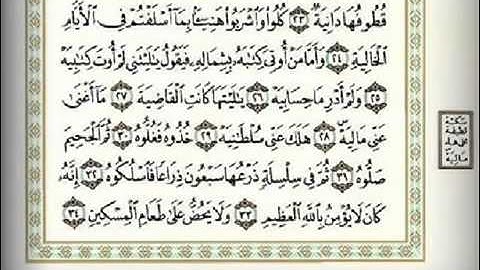 قُطُوفُهَا دَانِيَةٌ ٢٣ كُلُوا۟ وَٱشْرَبُوا۟ هَنِيٓـًٔۢا بِمَآ أَسْلَفْتُمْ فِى ٱلْأَيَّامِ
ٱلْخَالِيَةِ ٢٤ وَأَمَّا مَنْ أُوتِىَ كِتَٰبَهُۥ بِشِمَالِهِۦ فَيَقُولُ يَٰلَيْتَنِى لَمْ أُوتَ كِتَٰبِيَهْ
٢٥ وَلَمْ أَدْرِ مَا حِسَابِيَهْ ٢٦ يَٰلَيْتَهَا كَانَتِ ٱلْقَاضِيَةَ ٢٧ مَآ أَغْنَىٰ
عَنِّى مَالِيَهْ ۜ ٢٨ هَلَكَ عَنِّى سُلْطَٰنِيَهْ ٢٩ خُذُوهُ فَغُلُّوهُ ٣٠ ثُمَّ ٱلْجَحِيمَ
صَلُّوهُ ٣١ ثُمَّ فِى سِلْسِلَةٍ ذَرْعُهَا سَبْعُونَ ذِرَاعًا فَٱسْلُكُوهُ ٣٢ إِنَّهُۥ
كَانَ لَا يُؤْمِنُ بِٱللَّهِ ٱلْعَظِيمِ ٣٣ وَلَا يَحُضُّ عَلَىٰ طَعَامِ ٱلْمِسْكِينِ ٣٤
سكتة
لطيفة
على هاء
مالية